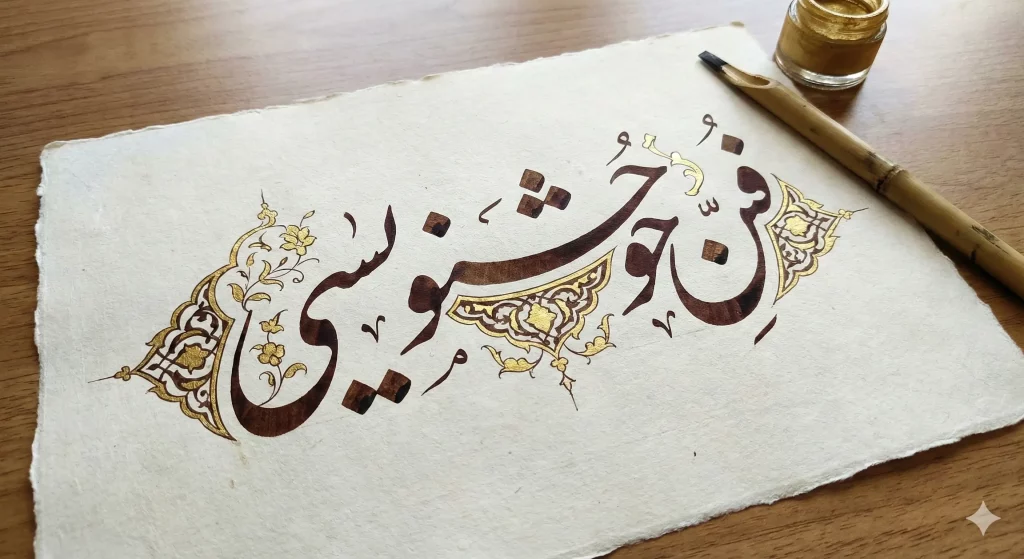 فنّ حو حشنویسی